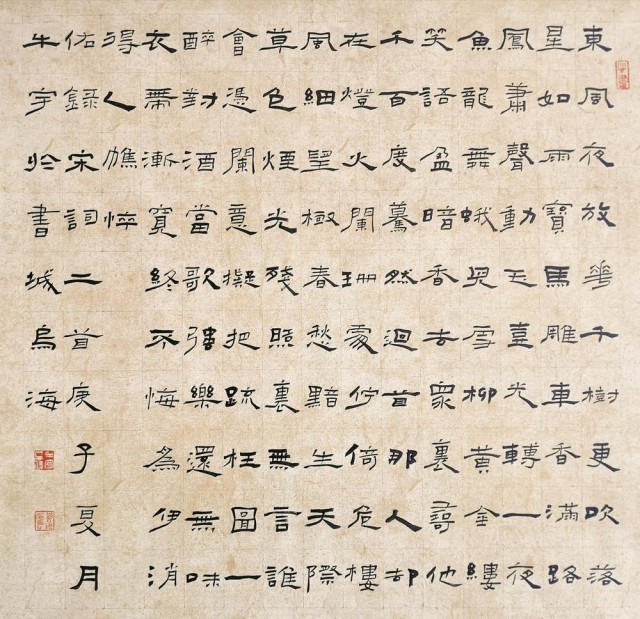 東風夜放華千樹更吹落
星如雨寶馬雕車香滿路
鳳蕭聲動玉壺光轉一夜
魚龍舞蛾兒雪柳黃金縷
笑語盈暗香去衆裏尋他
千百度驀然迴首那人却
在燈火闌珊處佇倚危樓
風細望極春愁黯生天際
草色煙光殘照裏無言誰
會憑闌意擬把疏狂圖一
醉對酒當歌強樂還無味
衣帶漸寬終不悔為伊消
得人憔悴
佑錄宋詞二首庚子夏月
牛宇於書城烏海